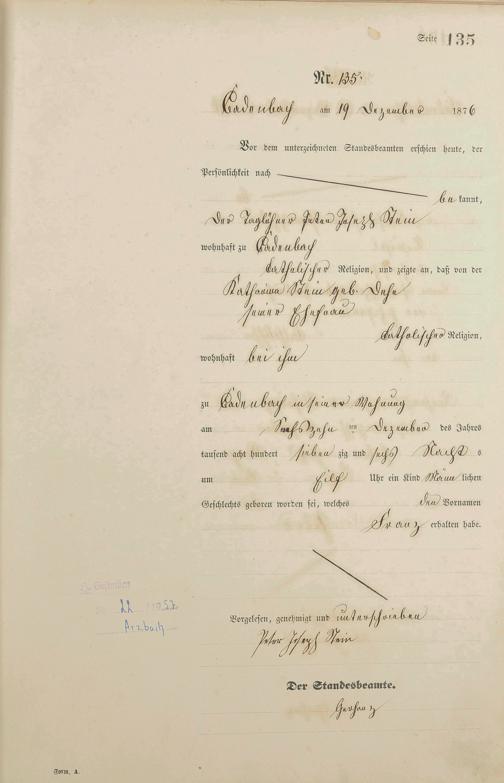 Seite 135
Nr. 135.
Cadenbach am 19 Dezember 1876
Vor dem unterzeichneten Standesbeamten erschien heute, der
Persönlichkeit nach
be kannt,
der Taglöhner Peter Joseph Stein
wohnhaft zu Cadenbach
katholischer Religion, und zeigte an, daß von der
Katharina Stein geb. Dehe
seiner Ehefrau
katholischer Religion,
wohnhaft bei ihm
zu Cadenbach in seiner Wohnung
am Sechszehn ten Dezember des Jahres
tausend acht hundert sieben zig und sechs Nacht s
um Eilf Uhr ein Kind Männ lichen
Geschlechts geboren worden sei, welches den Vornamen
Franz erhalten habe.
Vorgelesen, genehmigt und unterschrieben
Peter Joseph Stein
Der Standesbeamte.
22 1957
Arzbach
Form. A.